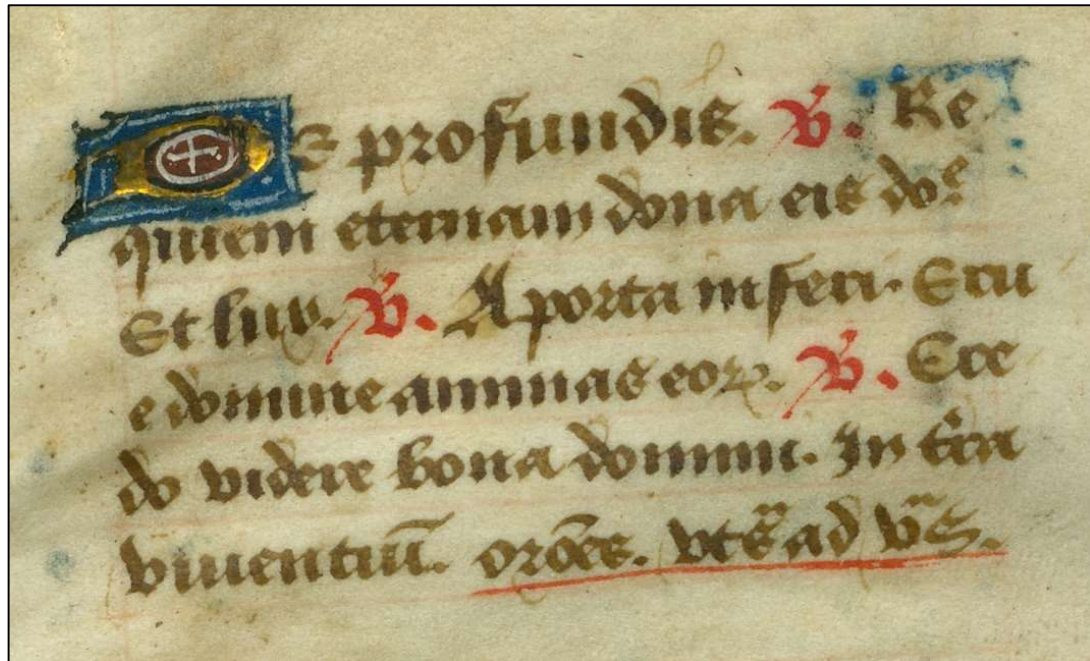 De profundis. V̄. Re
quiem eternam dona eis doᵉ
Et lux. V̄. A porta inferi. Eru
e domine animas eoꝝ. V̄. Cre
do videre bona domini. In t̄ra
viventiū. orōēs. vts̄ ad v̄s.